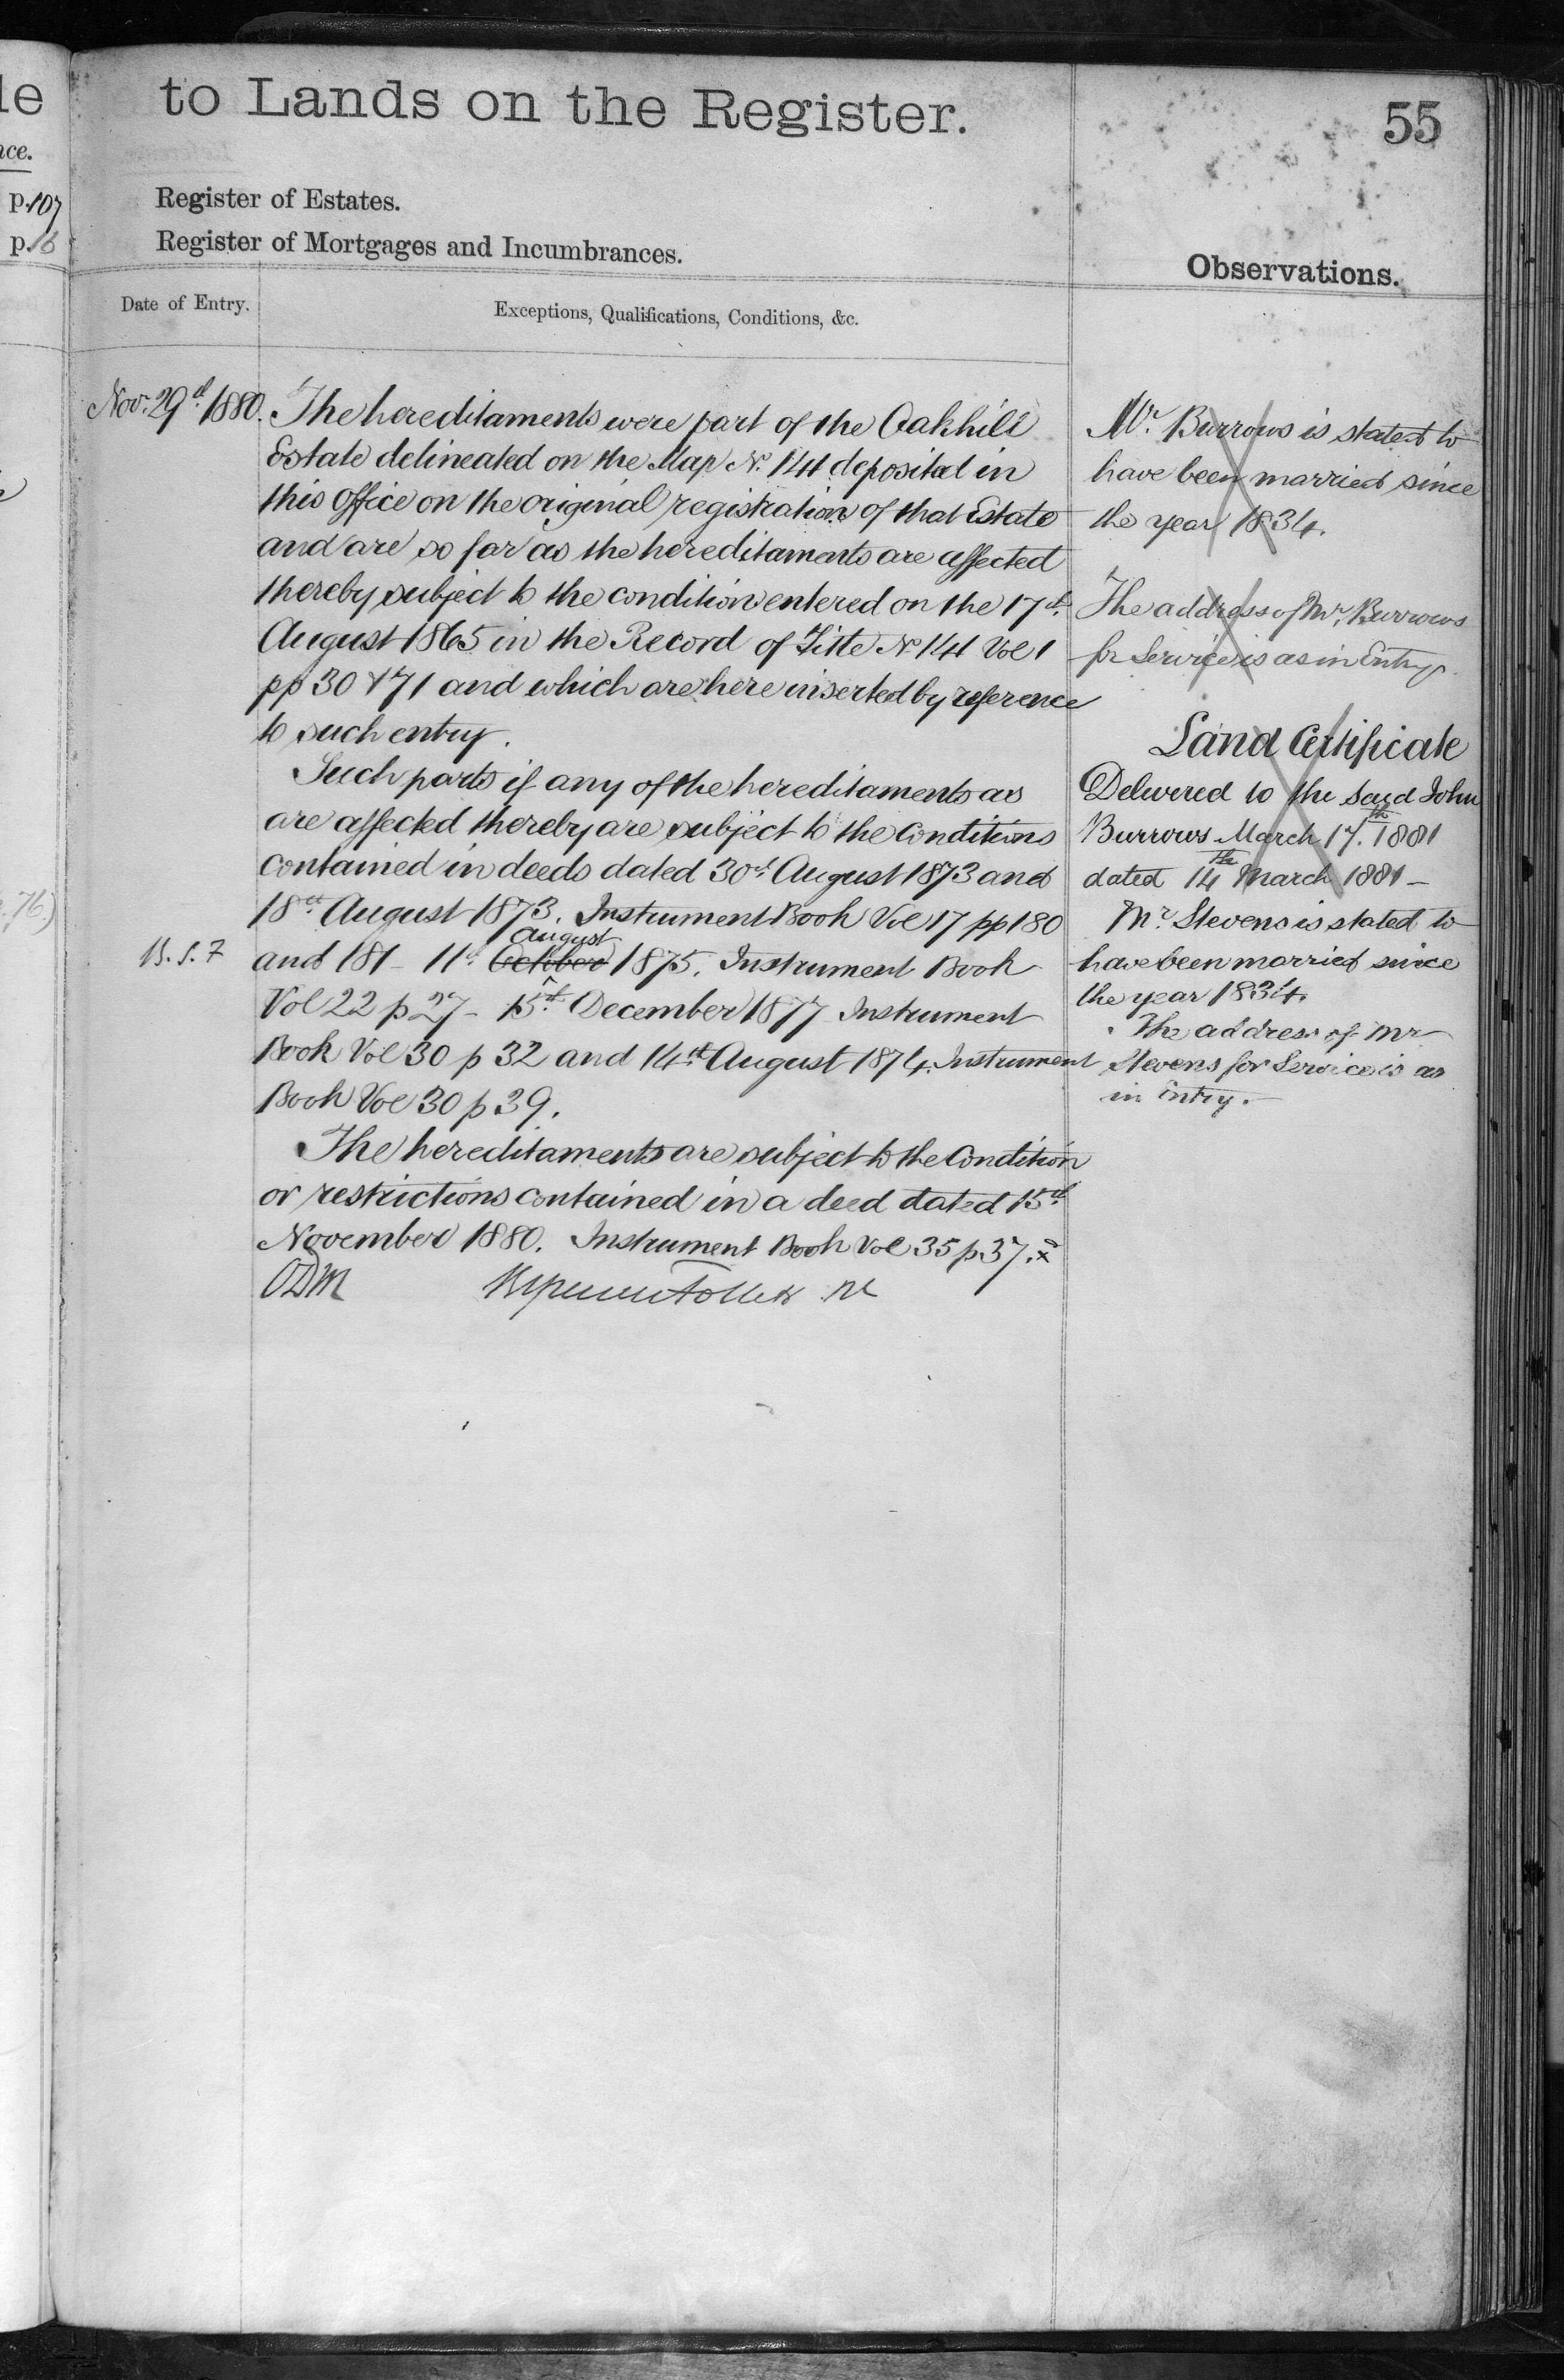 le
to Lands on the Register.
55
ce.
p.107
p.16
Register of Estates.
Register of Mortgages and Incumbrances.
Observations.
Date of Entry.
Exceptions, Qualifications, Conditions, &c.
Nov. 29th 1880. The hereditaments were part of the Oakhill
Estate delineated on the Map No. 141 deposited in
this Office on the original registration of that Estate
and are so far as the hereditaments are affected
thereby subject to the condition entered on the 17th
August 1865 in the Record of Title No 141 Vol 1
pp 30 & 71 and which are here inserted by reference
to such entry.
Such parts if any of the hereditaments as
are affected thereby are subject to the Conditions
contained in deeds dated 30th August 1873 and
18th August 1873. Instrument Book Vol 17 pp 180
August
and 181 - 11th October 1875. Instrument Book
Vol 22 p 27 - 15th December 1877 Instrument
Book Vol 30 p 32 and 14th August 1874. Instrument
Book Vol 30 p 39.
The hereditaments are subject to the Condition
or restrictions contained in a deed dated 15th
November 1880. Instrument Book Vol 35 p 37. x
ODM
Mr. Burrows is stated to
have been married since
the year 1834.
The address of Mr. Burrows
for Service is as in Entry.
Land Certificate
Delivered to the said John
Burrows March 17th. 1881
dated 14th March 1881 -
Mr. Stevens is stated to
have been married since
the year 1834.
The address of Mr
Stevens for Service is as
in Entry.
76.)